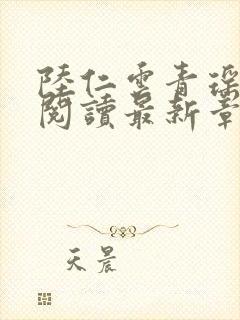 陸仁雲青瑶
閱讀最新章
天晨